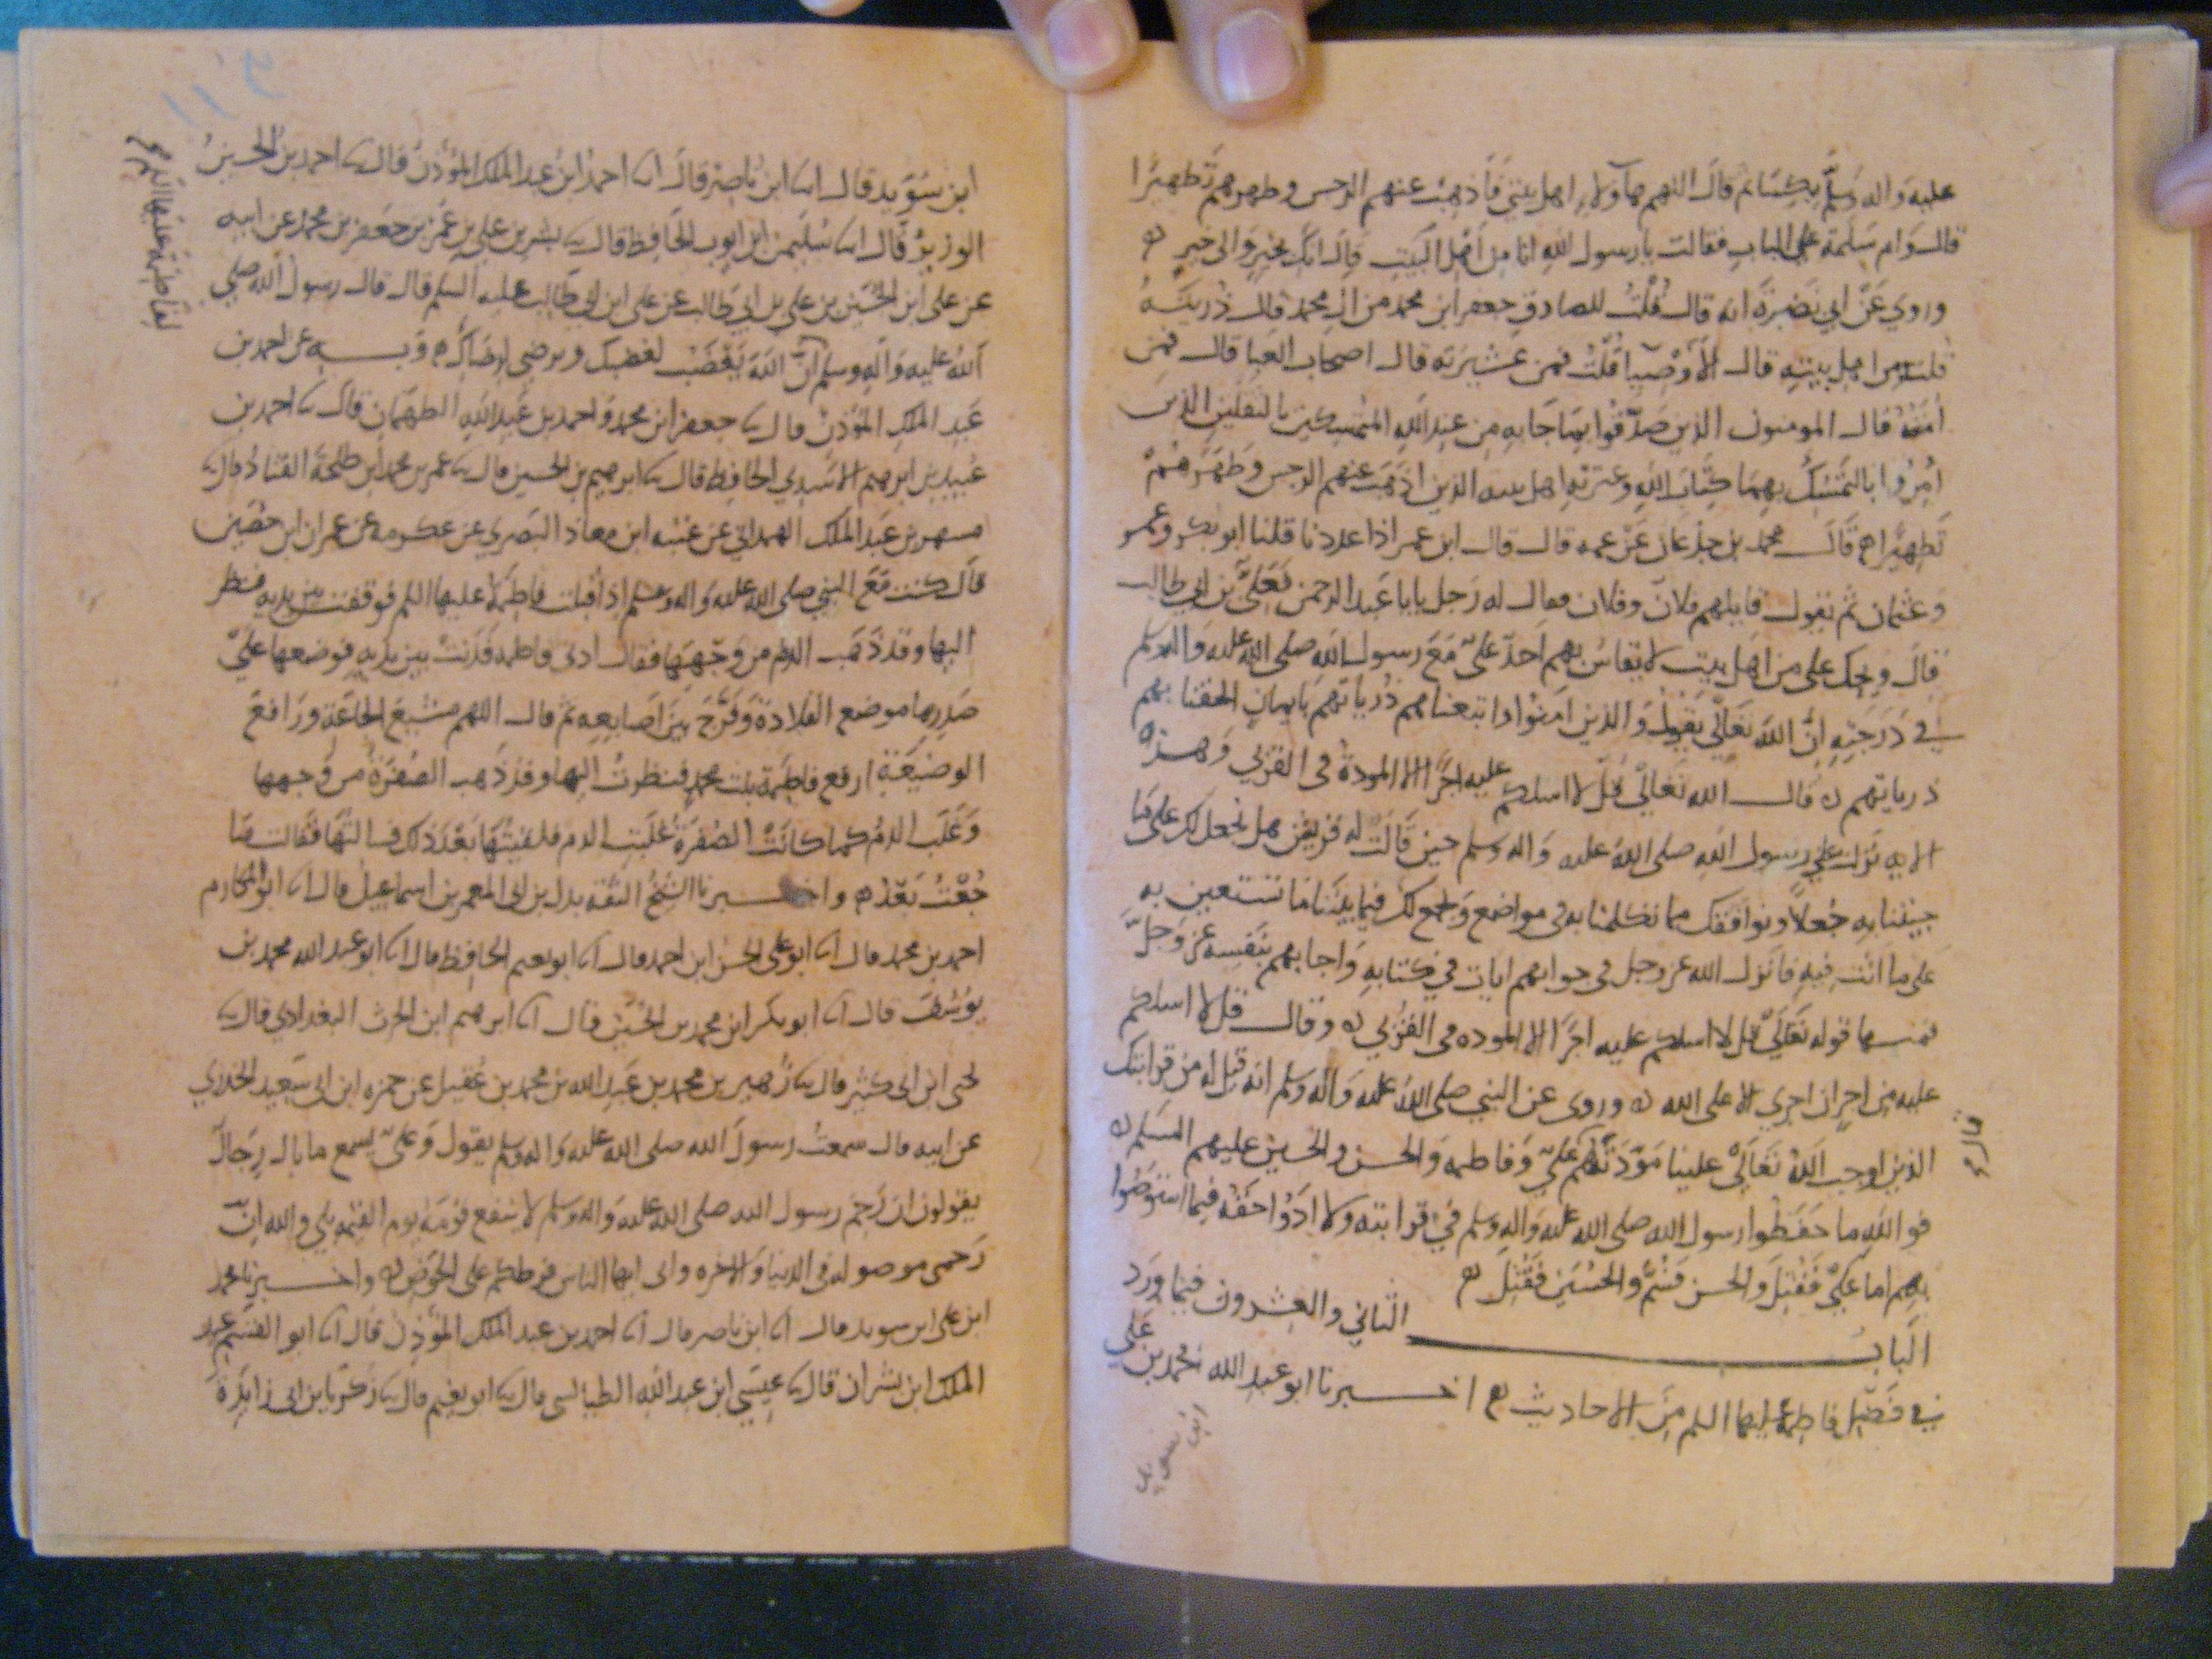 عليه واله وسلم بكساء ثم قال اللهم هآولاء اهل بيتي فأذهب عنهم الرجس وطهرهم تطهيرا
قال وام سلمة على الباب فقالت يا رسول الله انا من اهل البيت قال انك بخير والى خير
وروي عن ابي نضيرة انه قال قلت للصادق جعفر ابن محمد من ال محمد قال ذريته
قلت من اهل بيته قال الأوصيا قلت فمن عشيرته قال اصحاب العبا قال فمن
امته قال المومنون الذين صدقوا بما جا به من عند الله المتمسكين بالثقلين الذين
امروا بالتمسك بهما كتاب الله وعترته اهل بيته الذين اذهب عنهم الرجس وطهرهم
تطهيرا قال محمد بن جذعان عن عمه قال قال ابن عمر اذا عددنا قلنا ابو بكر وعمر
وعثمان ثم نقول فلان وفلان فقال له رجل يابا عبد الرحمن فعلي بن ابي طالب
قال ويحك علي من اهل بيت لا يقاس بهم احد علي مع رسول الله صلى الله عليه واله وسلم
في درجته ان الله تعالى يقول والذين امنوا واتبعناهم ذرياتهم بايمان الحقنا بهم
ذرياتهم قال الله تعالى قل لا اسلكم عليه اجرا الا المودة في القربي وهذه
الايه نزلت على رسول الله صلى الله عليه واله وسلم حين قالت له قريش هل نجعل لك على ما
جيتنا به جعلا ونوافقك مما تكلمنا به في مواضع ونجمع لك فيما بيننا ما تستعين به
على ما انت فيه فانزل الله عز وجل في جوابهم ايات في كتابه واجابهم بنفسه عز وجل
فمنها قوله تعالى قل لا اسلكم عليه اجرا الا الموده في القربي وقال قل لا اسلكم
عليه من اجر ان اجري الا على الله وروى عن النبي صلى الله عليه واله وسلم انه قيل له من قرابتك
الذين اوجب الله تعالى علينا مودتهم علي وفاطمه والحسن والحسين عليهم السلم
فوالله ما حفظوا رسول الله صلى الله عليه واله وسلم في قرابته ولا ادوا حقه فيما استوصوا
بهم اما علي فقتل والحسن فسم والحسين فقتل
الباب الثاني والعشرون فيما ورد
في فضل فاطمة عليها السلم من الاحاديث اخبرنا ابو عبد الله محمد بن علي
ابن سويد
ابن سويد قال انا ابن ناصر قال انا احمد ابن عبد الملك المؤذن قال نا احمد بن الحسين
الوزير قال انا سليمن ابن ايوب الحافظ قال نا بشر بن علي بن عمر بن جعفر بن محمد عن ابيه
عن علي ابن الحسين بن علي بن ابي طالب عن علي ابن ابي طالب عليه السلم قال قال رسول الله صلى
الله عليه واله وسلم ان الله يغضب لغضبك ويرضى لرضاك وبه عن احمد بن
لفاطمة عليها السلم
عبد الملك المؤذن قال نا جعفر ابن محمد واحمد بن عبد الله الطهمان قال نا احمد بن
عبيد بن ابرهيم الاسدي الحافظ قال نا ابرهيم بن الحسين قال نا عمر بن محمد ابن طلحة القناد قال نا
مسهر بن عبد الملك الهمداني عن عتبه ابن معاذ البصري عن عكرمه عن عمران ابن حصين
قال كنت مع النبي صلى الله عليه واله وسلم اذ اقبلت فاطمة عليها السلم فوقفت بين يديه فنظر
اليها وقد ذهب الدم من وجهها فقال ادني فاطمه فدنت بين يديه فوضعها على
صدرها موضع القلادة وفرج بين اصابعه ثم قال اللهم مشبع الجاعة ورافع
الوضيعة ارفع فاطمة بنت محمد فنظرت اليها وقد ذهب الصفرة من وجهها
وغلب الدم كما كانت الصفرة غلبت الدم فلقيتها بعد ذلك فسالتها فقالت ما
جعت بعد واخبرنا الشيخ الثقه بدل بن ابي المعمر بن اسماعيل قال انا ابو المكارم
احمد بن محمد قال انا ابو علي الحسن ابن احمد قال انا ابو نعيم الحافظ قال انا ابو عبد الله محمد بن
يوسف قال انا ابو بكر ابن محمد بن الحسين قال انا ابرهيم ابن الحرث البغدادي قال نا
يحيى ابن ابي كثير قال نا زهير بن محمد بن عبد الله بن محمد بن عقيل عن حمزه ابن ابي سعيد الخدري
عن ابيه قال سمعت رسول الله صلى الله عليه واله وسلم يقول وعلي يسمع ما بال رجال
يقولون ان رحم رسول الله صلى الله عليه واله وسلم لا ينفع قومه يوم القيمه بلى والله ان
رحمي موصوله في الدنيا والاخره واني ايها الناس فرطكم على الحوض واخبرنا محمد
ابن علي ابن سويد قال انا ابن ناصر قال انا احمد بن عبد الملك المؤذن قال انا ابو القسم عبد
الملك ابن بشران قال نا عيسى ابن عبد الله الطيالسي قال نا ابو نعيم قال نا زكريا بن ابي زايدة